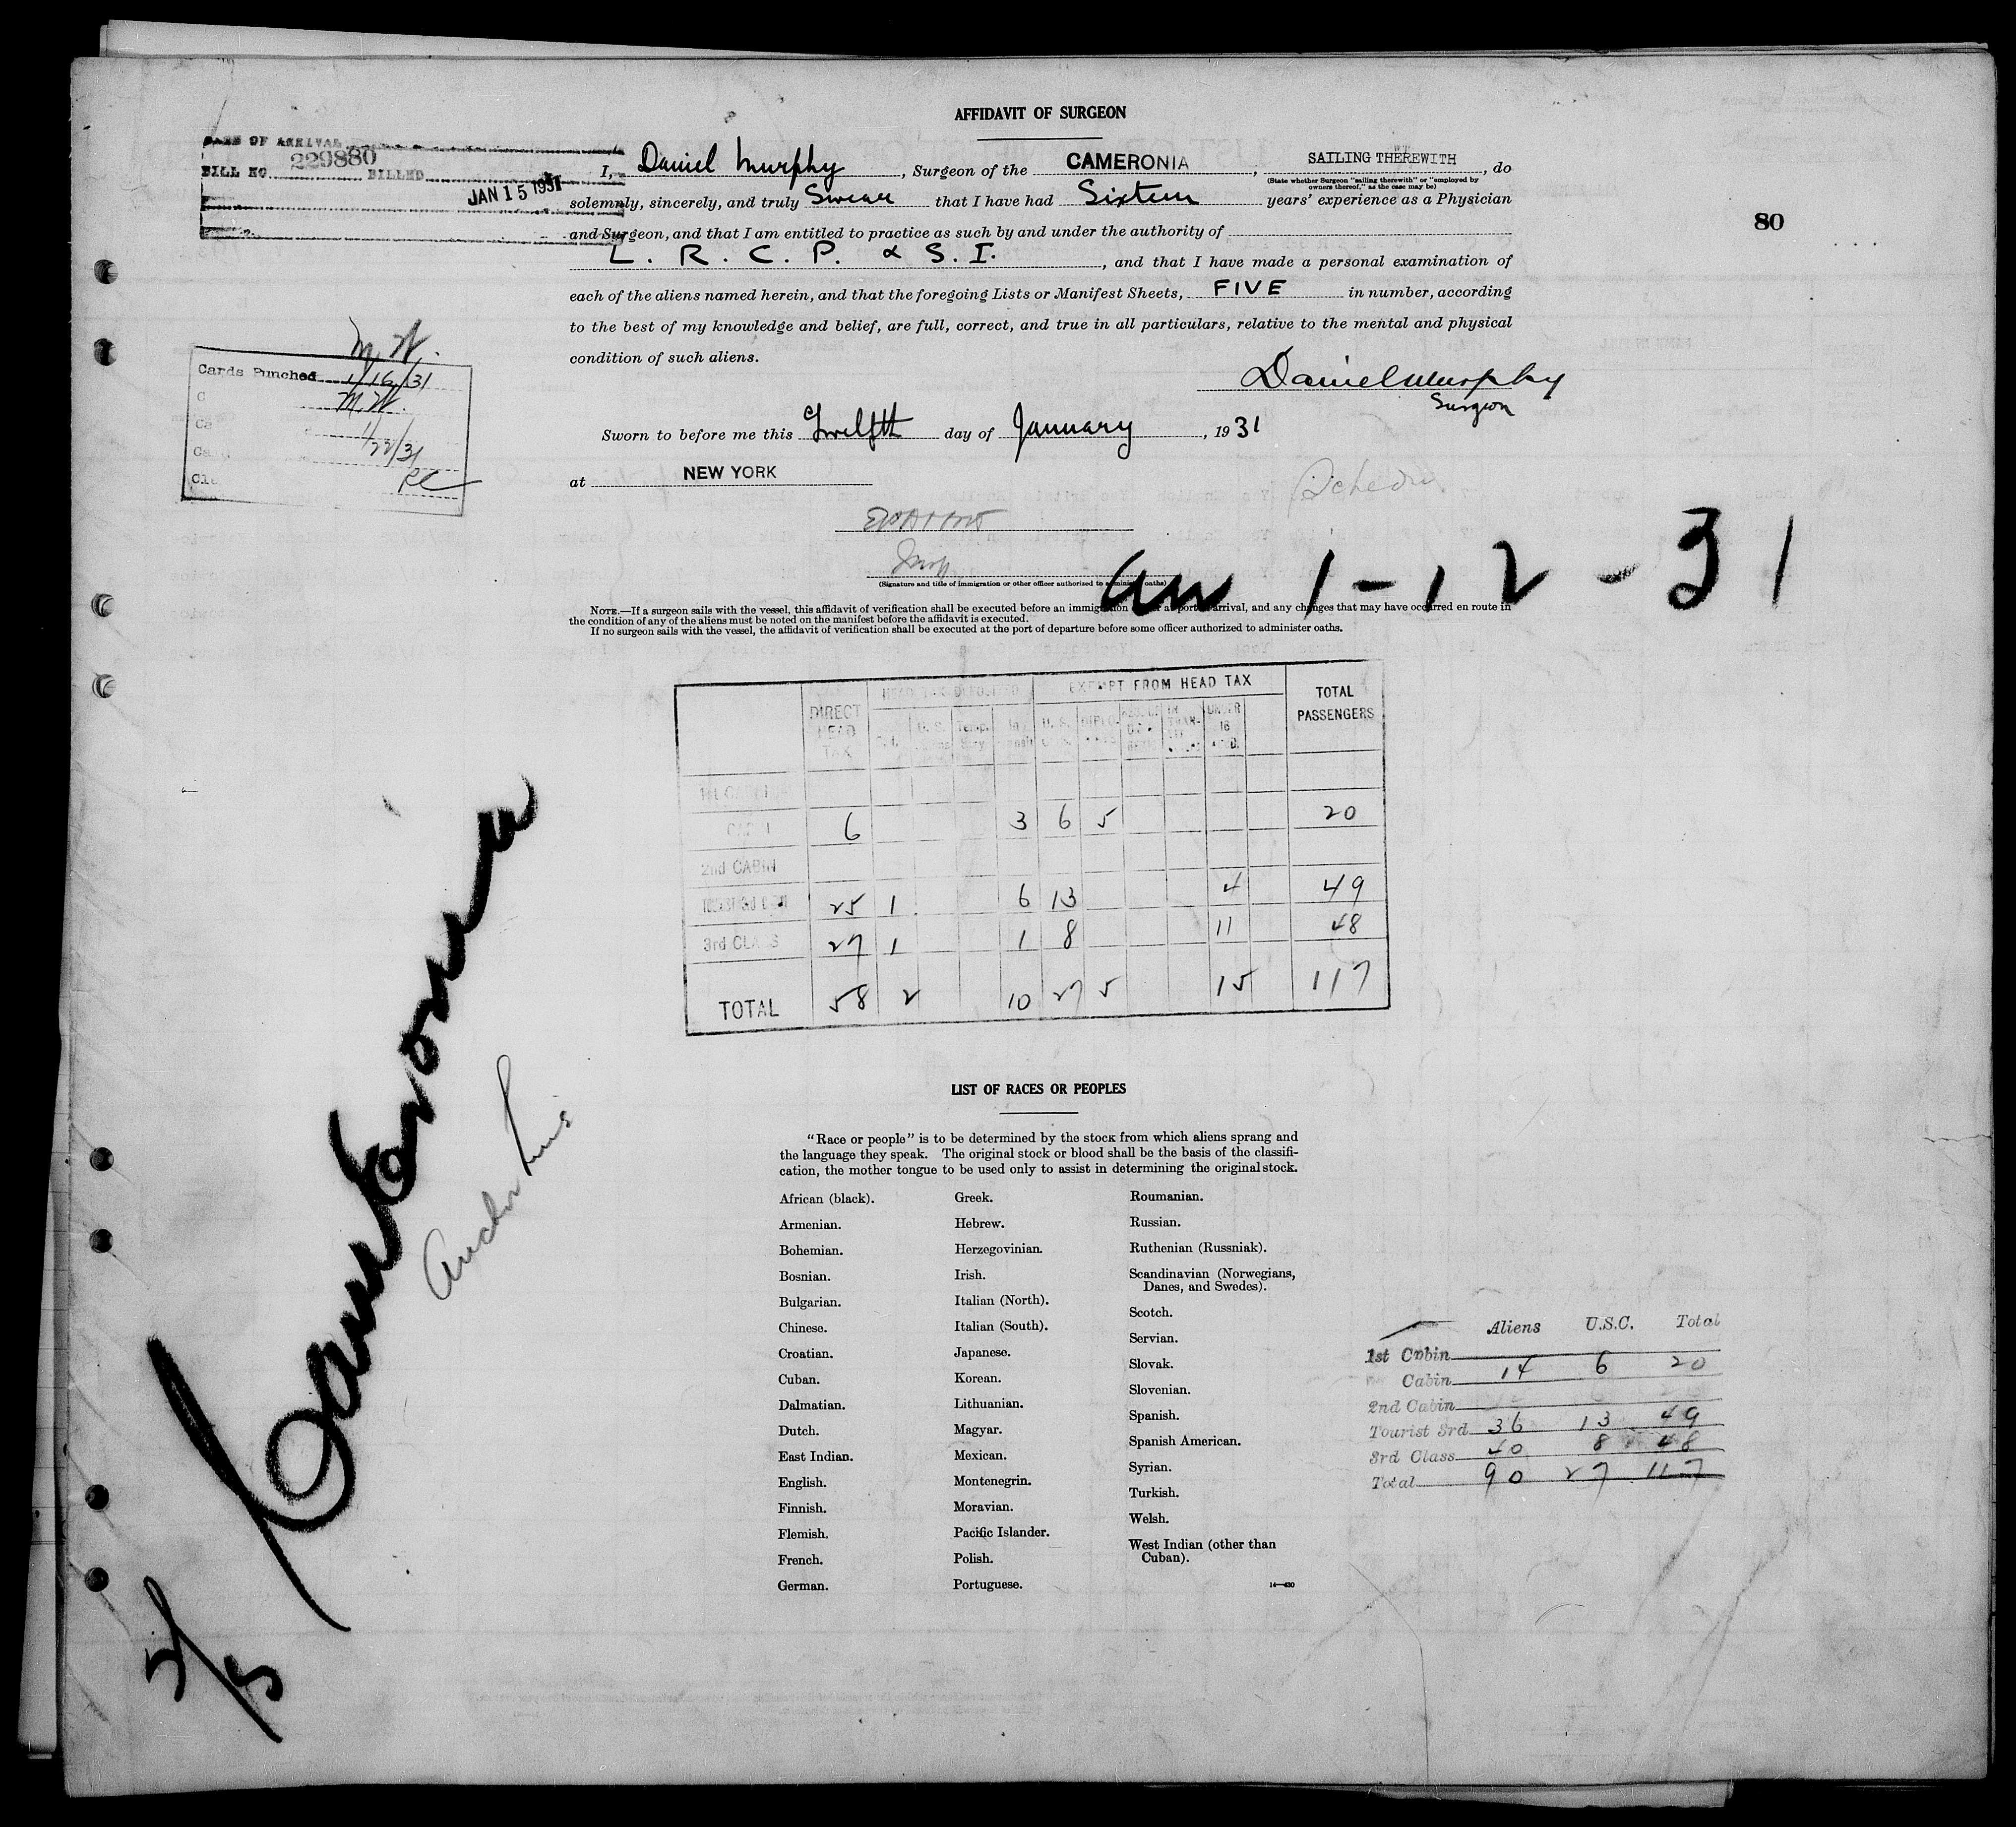 AFFIDAVIT OF SURGEON
DATE OF ARRIVAL
BILL NO. 229880 BILLED
JAN 15 1931
I, Daniel Murphy, Surgeon of the CAMERONIA, SAILING THEREWITH, do
(State whether Surgeon "sailing therewith" or "employed by
owners thereof," as the case may be)
solemnly, sincerely, and truly Swear that I have had Sixteen years' experience as a Physician
and Surgeon, and that I am entitled to practice as such by and under the authority of
L. R. C. P. & S. I., and that I have made a personal examination of
each of the aliens named herein, and that the foregoing Lists or Manifest Sheets, FIVE in number, according
to the best of my knowledge and belief, are full, correct, and true in all particulars, relative to the mental and physical
condition of such aliens.
80
Daniel Murphy
Surgeon
M.W.
Cards Punched 1/16/31
M.W.
1/22/31
Sworn to before me this Twelfth day of January, 1931
at NEW YORK
(Signature and title of immigration or other officer authorized to administer oaths)
arr 1-12-31
NOTE.—If a surgeon sails with the vessel, this affidavit of verification shall be executed before an immigration officer at port of arrival, and any changes that may have occurred en route in
the condition of any of the aliens must be noted on the manifest before the affidavit is executed.
If no surgeon sails with the vessel, the affidavit of verification shall be executed at the port of departure before some officer authorized to administer oaths.
DIRECT HEAD TAX HEAD TAX DEPOSITED EXEMPT FROM HEAD TAX TOTAL PASSENGERS
1st CABIN
CABIN 6 3 6 5 20
2nd CABIN
TOURIST 3rd CABIN 25 1 6 13 4 49
3rd CLASS 27 1 1 8 11 48
TOTAL 58 2 10 27 5 15 117
Cameronia
Anchor Line
5/5
LIST OF RACES OR PEOPLES
"Race or people" is to be determined by the stock from which aliens sprang and
the language they speak. The original stock or blood shall be the basis of the classifi-
cation, the mother tongue to be used only to assist in determining the original stock.
African (black).
Armenian.
Bohemian.
Bosnian.
Bulgarian.
Chinese.
Croatian.
Cuban.
Dalmatian.
Dutch.
East Indian.
English.
Finnish.
Flemish.
French.
German.
Greek.
Hebrew.
Herzegovinian.
Irish.
Italian (North).
Italian (South).
Japanese.
Korean.
Lithuanian.
Magyar.
Mexican.
Montenegrin.
Moravian.
Pacific Islander.
Polish.
Portuguese.
Roumanian.
Russian.
Ruthenian (Russniak).
Scandinavian (Norwegians,
Danes, and Swedes).
Scotch.
Servian.
Slovak.
Slovenian.
Spanish.
Spanish American.
Syrian.
Turkish.
Welsh.
West Indian (other than
Cuban).
14—430
Aliens U.S.C. Total
1st Cabin
Cabin 14 6 20
2nd Cabin
Tourist 3rd 36 13 49
3rd Class 40 8 48
Total 90 27 117